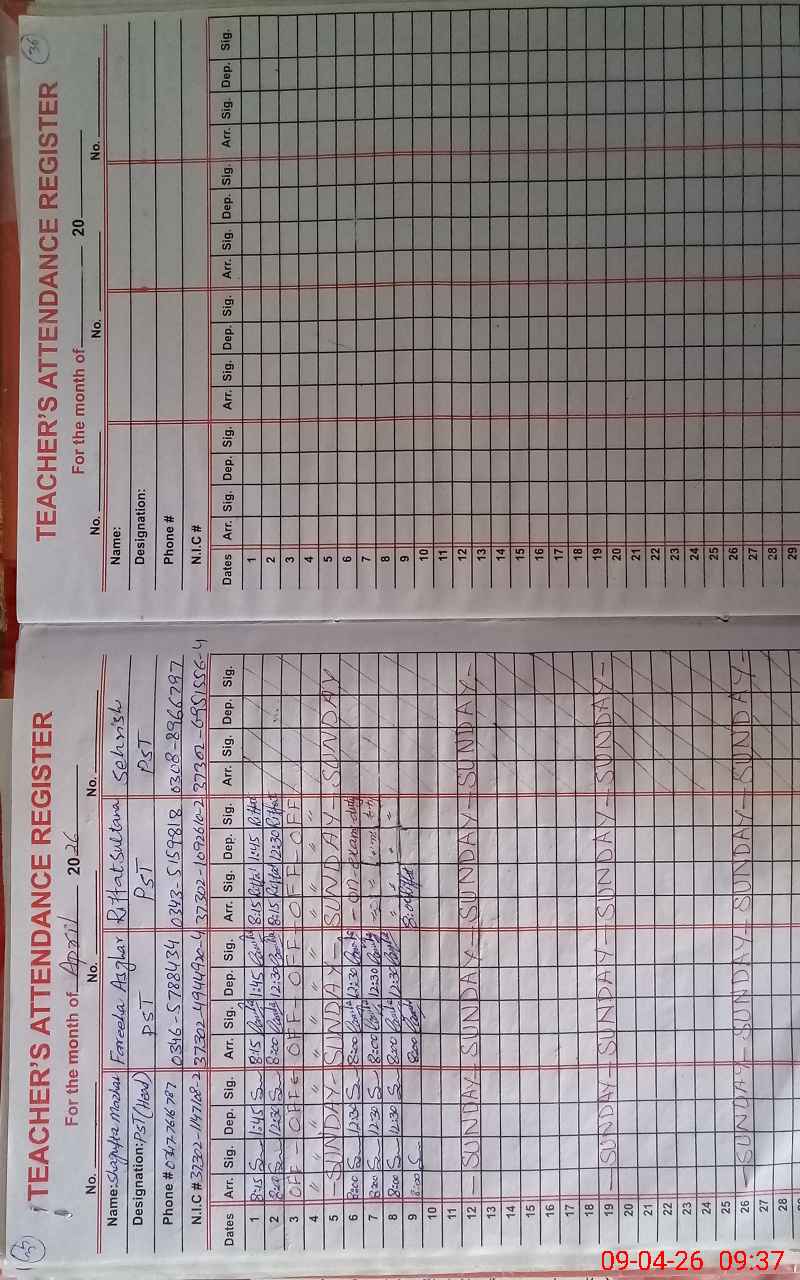 35
TEACHER'S ATTENDANCE REGISTER
For the month of April 2026
No. No. No. No.
Name: Shagufta Mazhar Fareeha Asghar Riffat Sultana Sehrish
Designation: PST (Head) PST PST PST
Phone # 0347-7616787 0346-5788434 0343-5159818 0308-8966797
N.I.C # 37302-1147168-2 37302-4944920-4 37302-1092610-2 37302-6951556-4
Dates Arr. Sig. Dep. Sig. Arr. Sig. Dep. Sig. Arr. Sig. Dep. Sig. Arr. Sig. Dep. Sig.
1 8:15 1:45 8:15 1:45 8:15 Riffat 1:45 Riffat
2 8:00 12:30 8:00 12:30 8:15 Riffat 12:30 Riffat
3 OFF - OFF - OFF - OFF - OFF
4 " " " " " " "
5 - SUNDAY - SUNDAY - SUNDAY - SUNDAY
6 8:00 12:30 8:00 12:30 - on exam duty
7 8:00 12:30 8:00 12:30
8 8:00 12:30 8:00 12:30 " " " "
9 8:00 8:00 8:00 Riffat
10
11
12 - SUNDAY - SUNDAY - SUNDAY - SUNDAY -
13
14
15
16
17
18
19 - SUNDAY - SUNDAY - SUNDAY - SUNDAY -
20
21
22
23
24
25
26 - SUNDAY - SUNDAY - SUNDAY - SUNDAY -
27
28
36
TEACHER'S ATTENDANCE REGISTER
For the month of 20
No. No. No. No.
Name:
Designation:
Phone #
N.I.C #
Dates Arr. Sig. Dep. Sig. Arr. Sig. Dep. Sig. Arr. Sig. Dep. Sig. Arr. Sig. Dep. Sig.
1
2
3
4
5
6
7
8
9
10
11
12
13
14
15
16
17
18
19
20
21
22
23
24
25
26
27
28
29
09-04-26 09:37